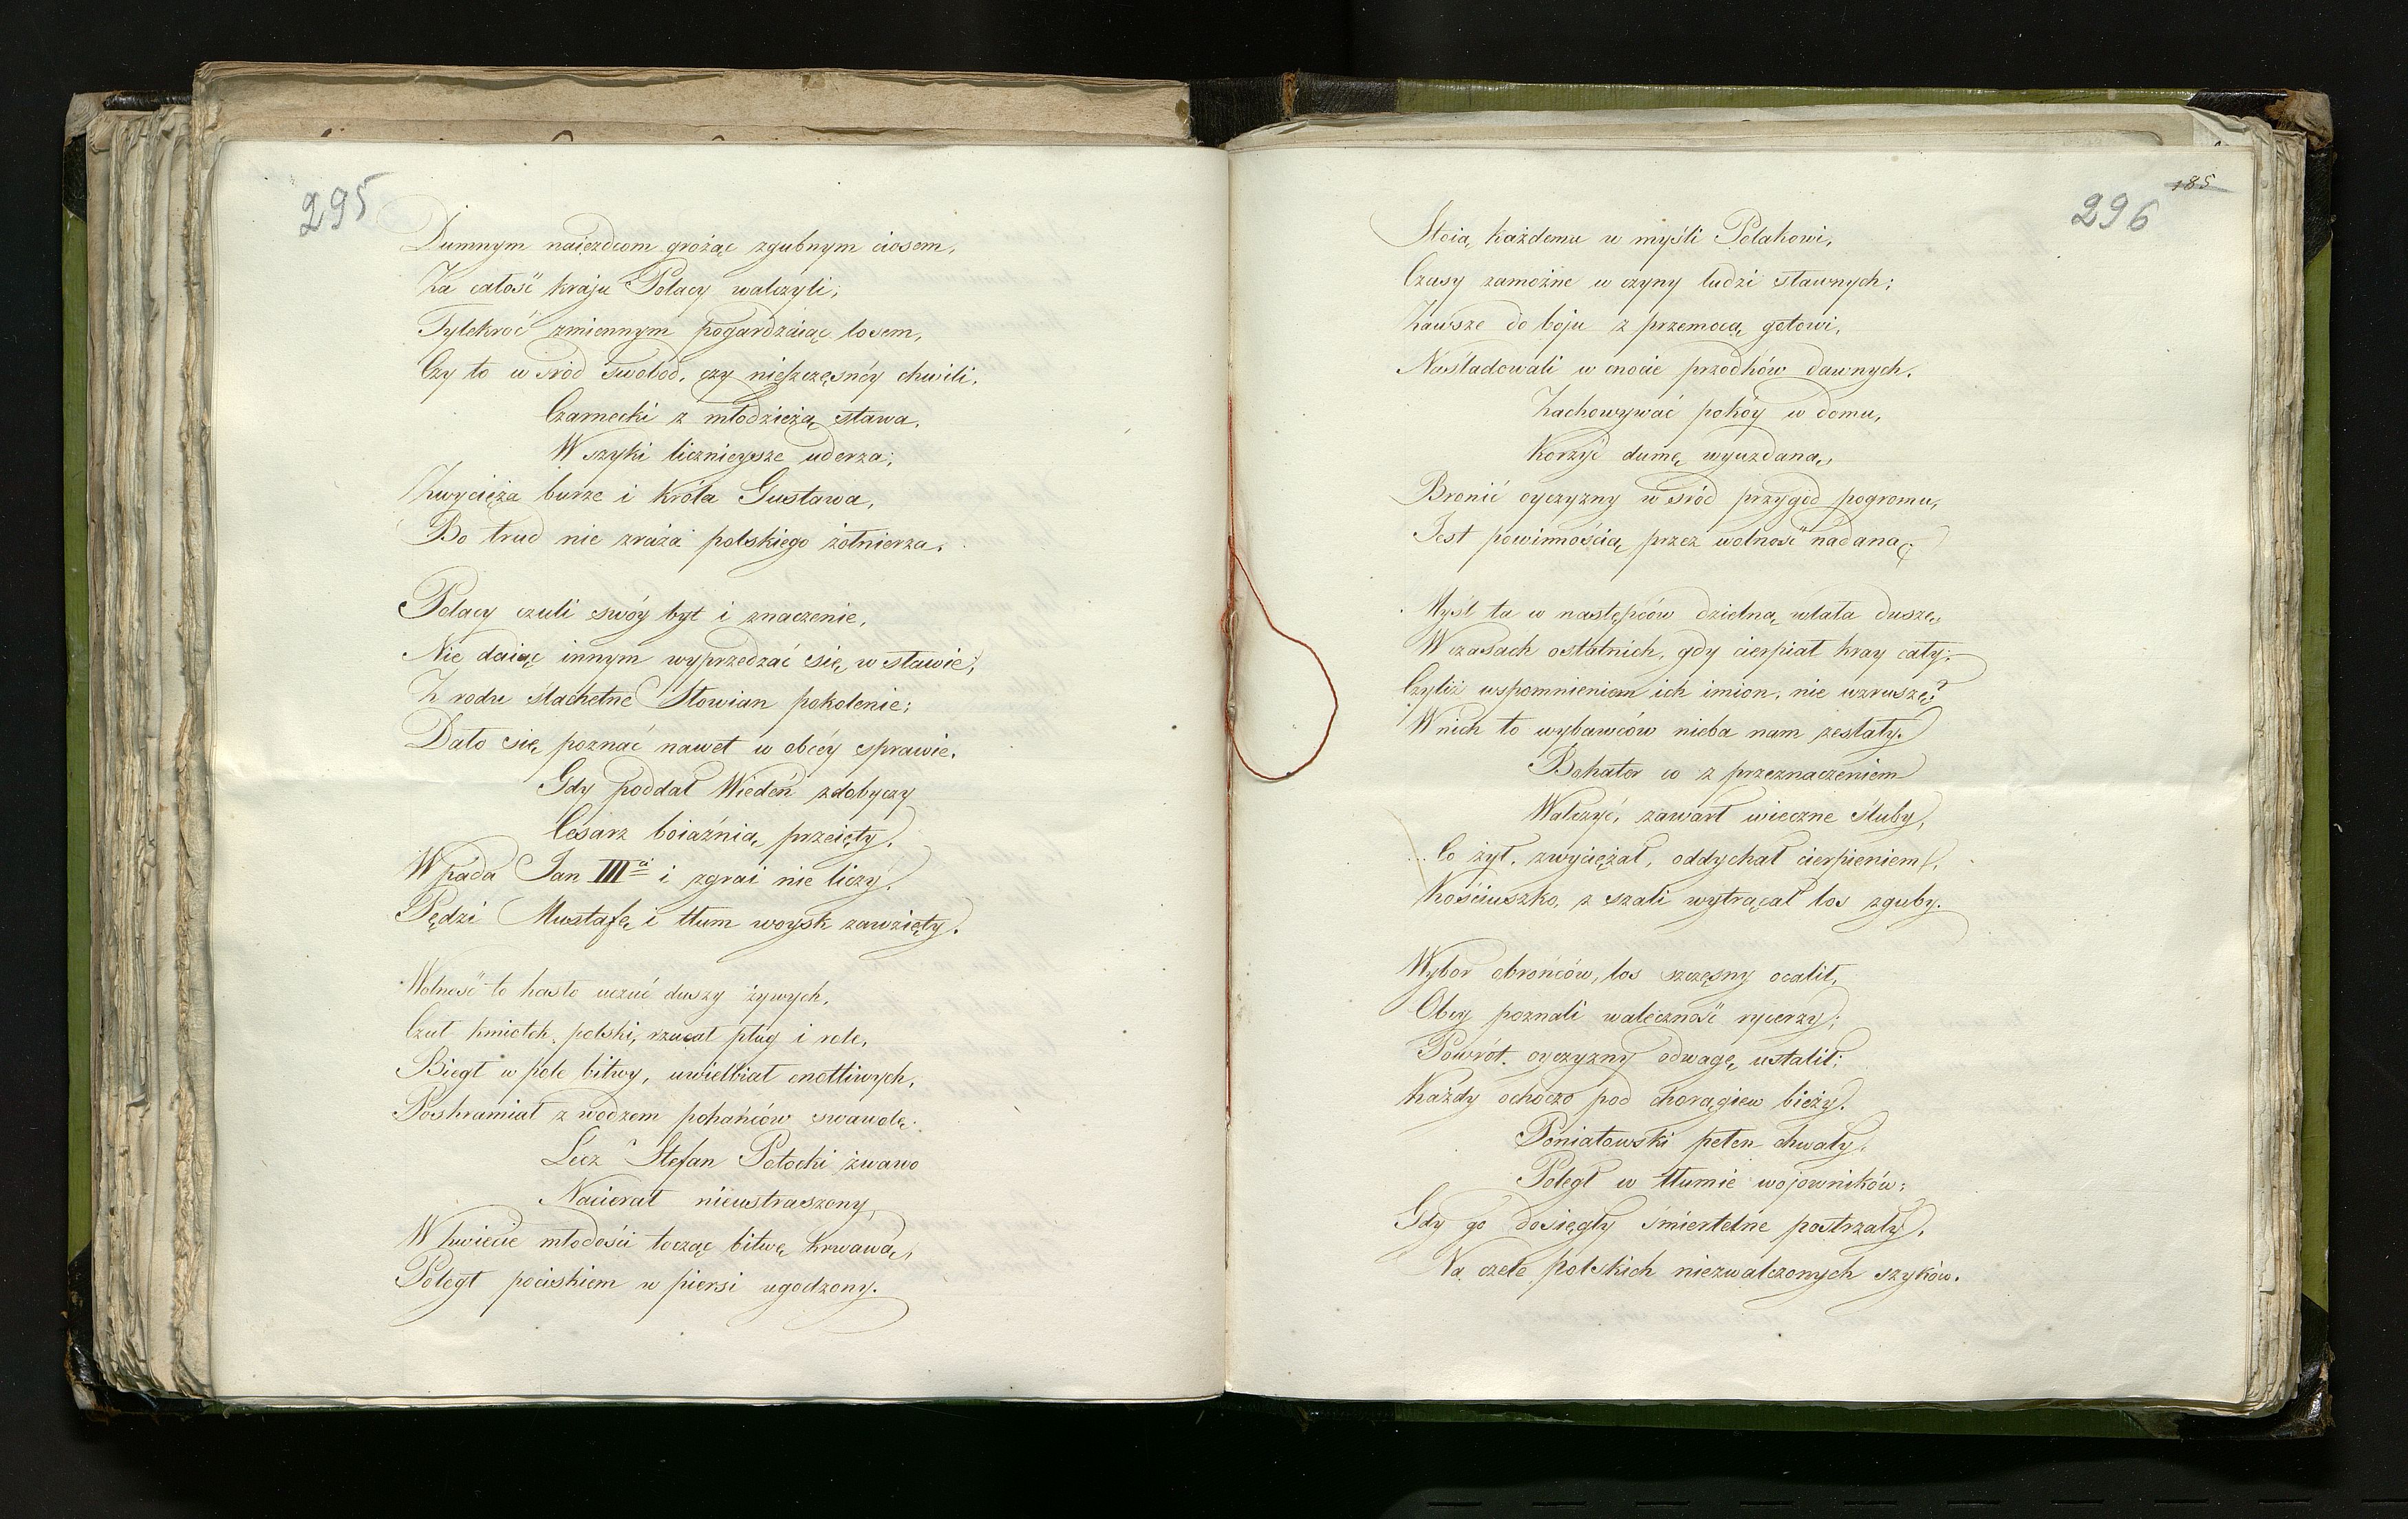 295
Dumnym naiezdcom grożąc zgubnym ciosem,
Za całość kraju Polacy walczyli;
Tylekroć zmiennym pogardzaiąc losem,
Czy to w śród swobód, czy nieszczęsnéy chwili.
Czarnecki z młodzieżą stawa,
W szyki licznieysze uderza;
Zwycięża burze i Króla Gustawa,
Bo trud nie zraża polskiego żołnierza.
Polacy czuli swóy byt i znaczenie,
Nie daiąc innym wyprzedzać się w sławie;
Z rodu ślachetne Słowian pokolenie;
Dało się poznać nawet w obcéy sprawie.
Gdy poddał Wiedeń zdobyczy
Cesarz boiaźnią przeięty,
Wpada Jan III i zgrai nie liczy,
Pędzi Mustafę i tłum woysk zawzięty.
Wolność to hasło uczuć duszy żywych,
Czuł kmiotek polski, rzucał pług i role,
Biegł w pole bitwy, uwielbiał cnotliwych,
Poskramiał z wodzem pohańców swawolę.
Lecz Stefan Potocki żwawo
Nacierał nieustraszony,
W kwiecie młodości tocząc bitwę krwawą,
Poległ pociskiem w piersi ugodzony.
185
296
Stoią każdemu w myśli Polakowi,
Czasy zamożne w czyny ludzi sławnych;
Zawsze do boju z przemocą gotowi,
Naśladowali w cnocie przodków dawnych.
Zachowywać pokóy w domu,
Korzyć dumę wyuzdaną,
Bronić oyczyzny w śród przygód pogromu,
Jest powinnością przez wolność nadaną;
Myśl ta w następców dzielną wlała duszę,
W czasach ostatnich, gdy cierpiał kray cały;
Czyliż wspomnieniem ich imion, nie wzruszę?
W nich to wybawców nieba nam zesłały.
Bohater co z przeznaczeniem
Walczyć, zawarł wieczne śluby,
Co żył, zwyciężał, oddychał cierpieniem,
Kościuszko, z szali wytrącał los zguby.
Wybor obrońców, los szczęsny ocalił,
Obcy poznali waleczność rycerzy;
Powrót oyczyzny odwagę ustalił;
Każdy ochoczo pod chorągiew bieży.
Poniatowski pełen chwały,
Poległ w tłumie wojowników;
Gdy go dosięgły śmiertelne postrzały,
Na czele polskich niezwalczonych szyków.